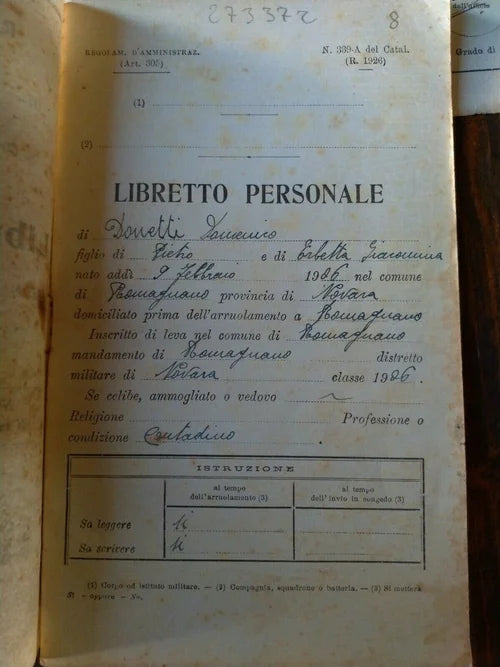 273372
8
dell'arma
Grado di
REGOLAM. D'AMMINISTRAZ.
(Art. 305)
N. 339-A del Catal.
(R. 1926)
(1)
(2)
LIBRETTO PERSONALE
di Donetti Domenico
figlio di Pietro e di Erbetta Giacomina
nato addì 9 Febbraio 1926 nel comune
di Romagnano provincia di Novara
domiciliato prima dell'arruolamento a Romagnano
Inscritto di leva nel comune di Romagnano
mandamento di Romagnano distretto
militare di Novara classe 1926.
Se celibe, ammogliato o vedovo ~
Religione Professione o
condizione Contadino
ISTRUZIONE
al tempo dell'arruolamento (3)
al tempo dell'invio in congedo (3)
Sa leggere si
Sa scrivere si
(1) Corpo od istituto militare. — (2) Compagnia, squadrone o batteria. — (3) Si metterà
Si - oppure - No.